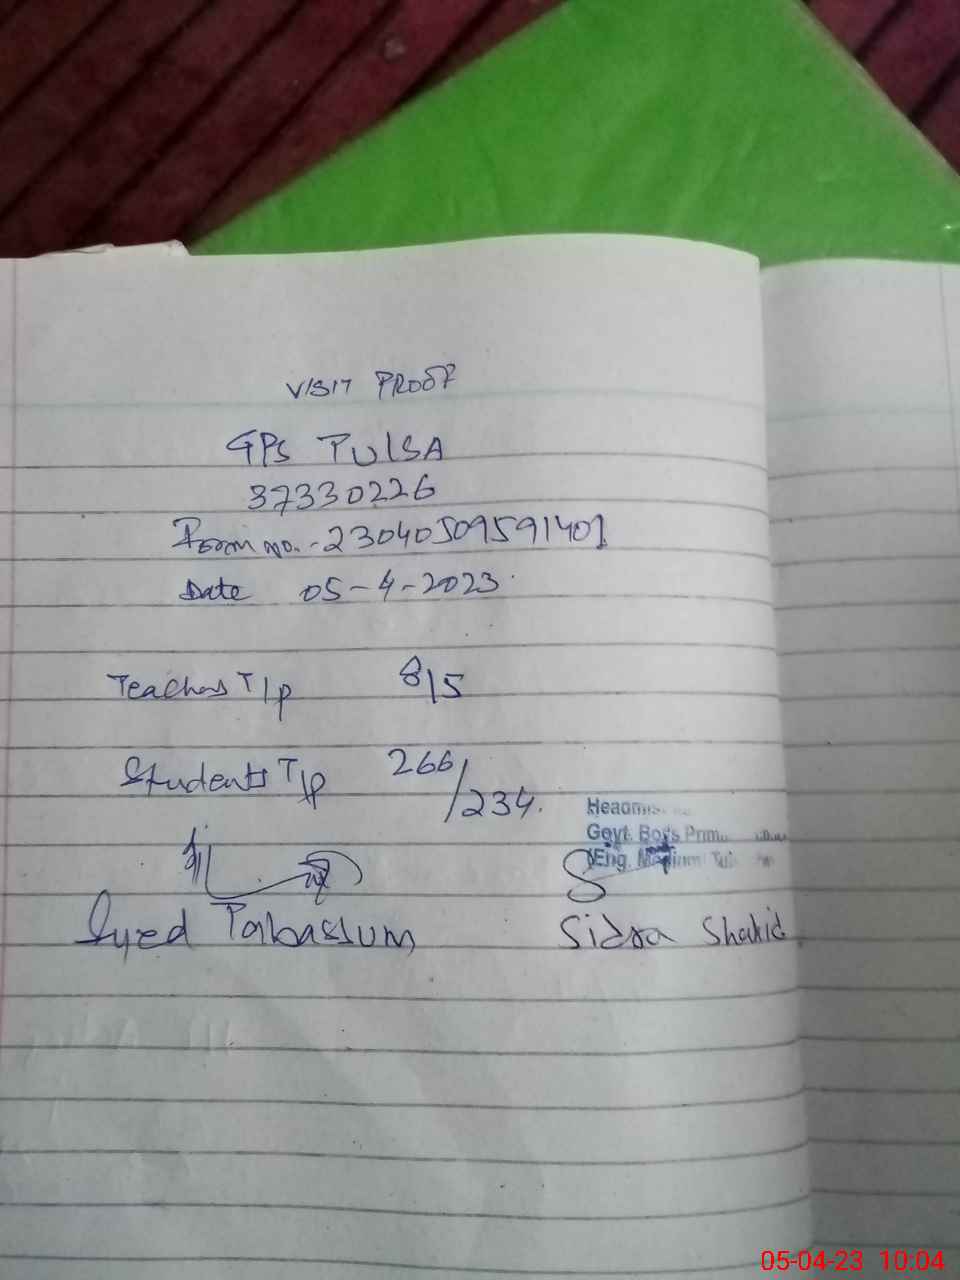 VISIT PROOF
GPS TULSA
37330226
Form no.-23040509591401
Date 05-4-2023
Teachers T/p 8/5
Students T/p 266/234.
Headmis
Govt. Boys Prim
(Eng. Medium
Syed Tabassum
Sidra Shahid
05-04-23 10:04